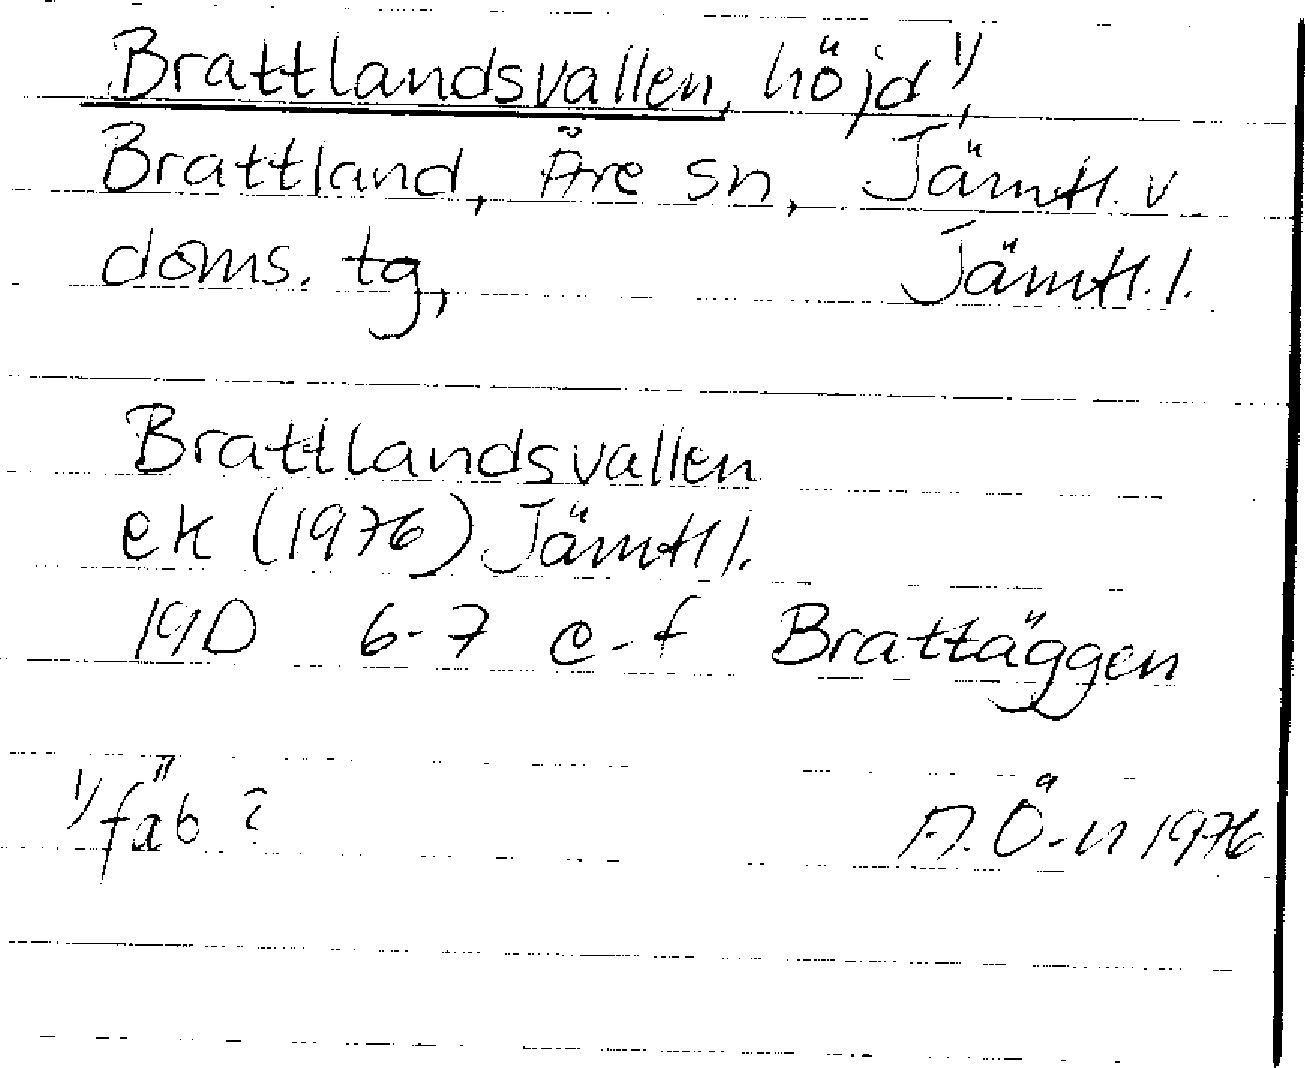 Brattlandsvallen, höjd 1),
Brattland, Åre sn, Jämtl. v.
doms. tg, Jämtl. l.
Brattlandsvallen
ek (1976) Jämtl l.
19D 6-7 e-f Brattäggen
1) fäb ?
A. Ö-n 1976